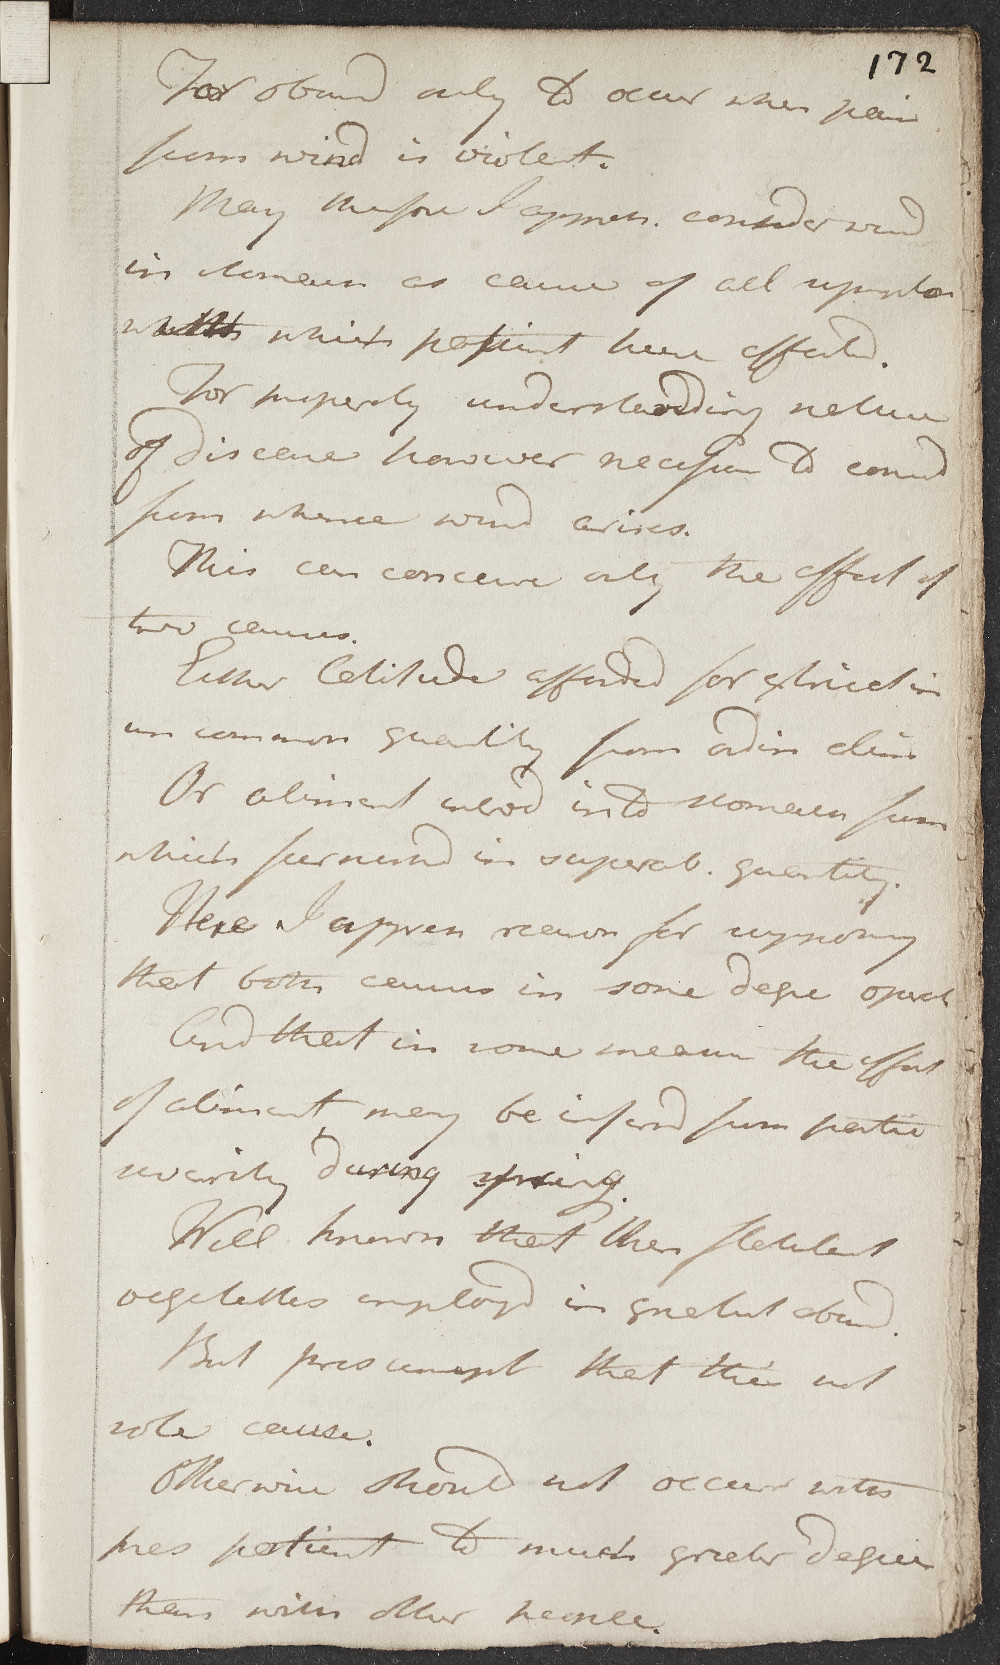 172
For observd only to occur when pain
from wind is violent.
May therfore I appreh. consider wind
in stomach as cause of all symptos
with which patient here affected.
For properly understanding nature
of disease however necessar to consid
from whence wind arises.
This can conceive only the effect of
two causes.
Either latitude afforded for extricat in
uncommon quantity from ordin
Or aliment introd into stomach from
which furnishd in superab. quantity.
Here I appreh reason for supposing
that both causes in some degre operat
And that in some measure the effect
of aliment may be inferd from partic
severity during spring.
Well known that then flatulent
vegetables employd in greatest abund.
But presument that this not
sole cause.
Otherwise should not occur with
pres patient to much greater degree
than with other people.